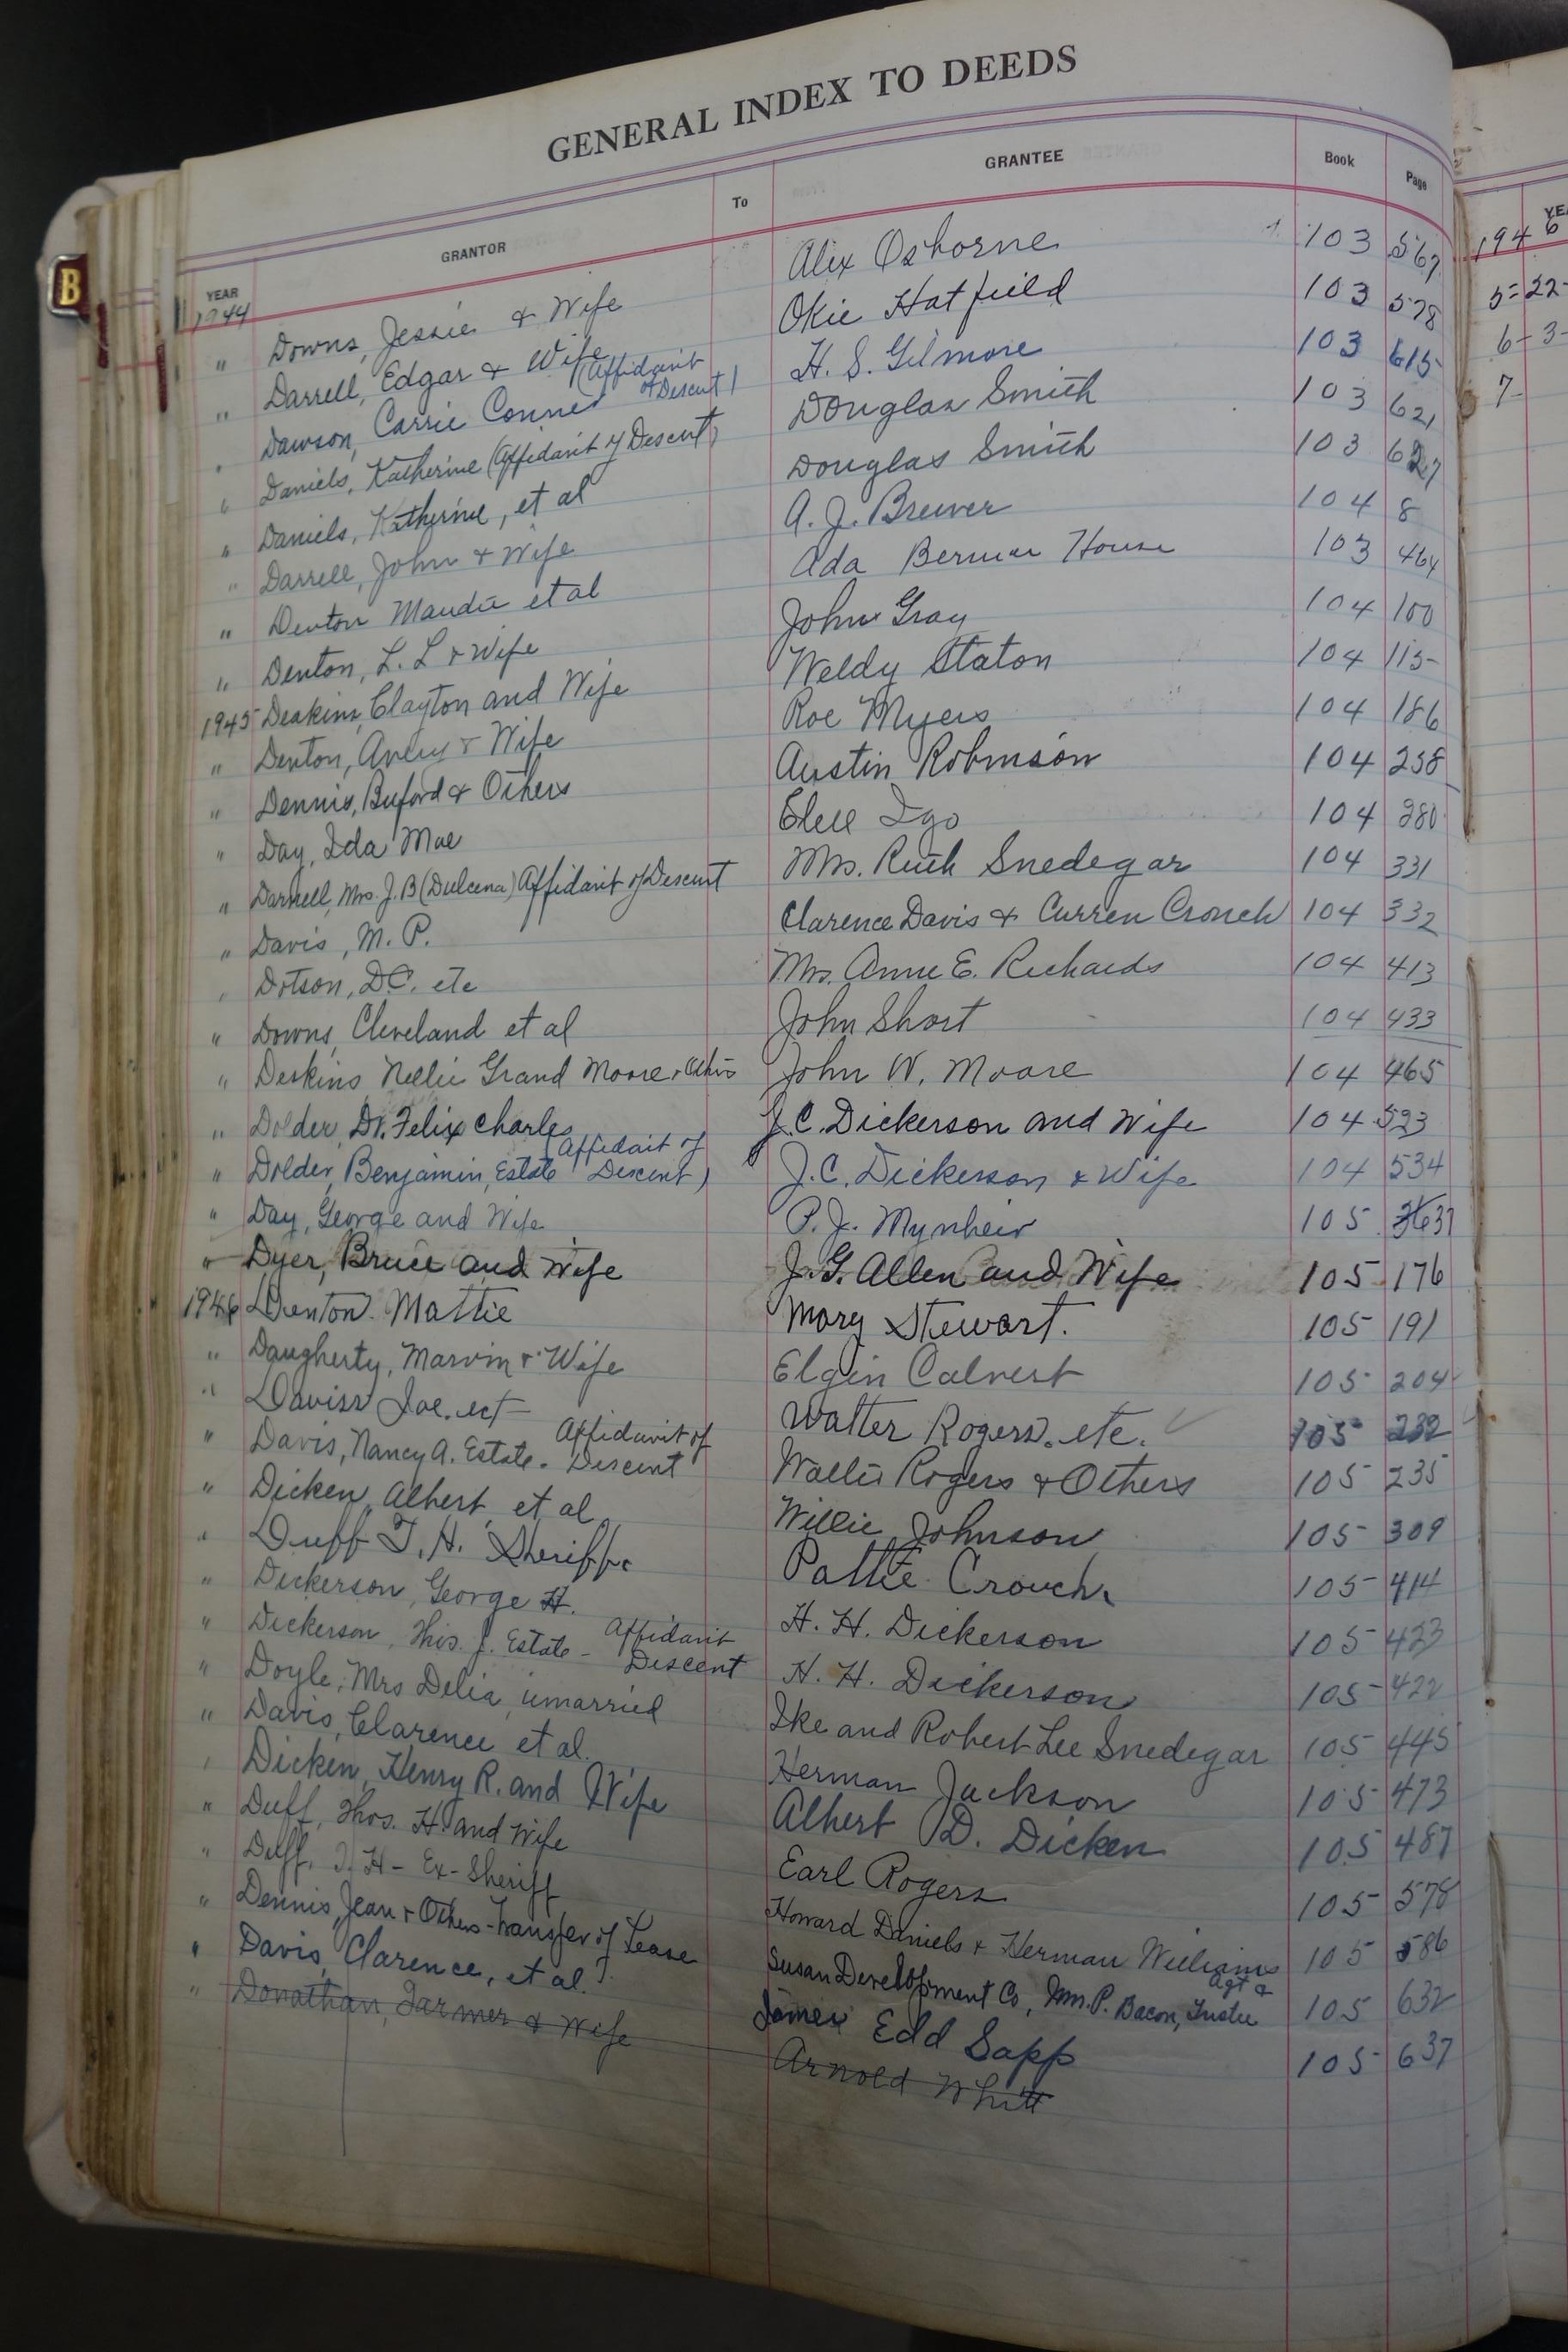 GENERAL INDEX TO DEEDS
YEAR GRANTOR To GRANTEE Book Page
1944
" Downs, Jessie & Wife Alex Osborne 103 567
" Darrell, Edgar & Wife Okie Hatfield 103 578
" Dawson, Carrie Conner (Affidavit of Descent) H. S. Gilmore 103 615
" Daniels, Katherine (Affidavit of Descent) Douglas Smith 103 621
" Daniels, Katherine, et al Douglas Smith 103 627
" Darrell, John & Wife A. J. Brewer 104 8
" Denton Maudie et al Ada House 103 464
" Denton, L. L & Wife John Gray 104 100
1945 Deakins, Clayton and Wife Weldy Staton 104 115
" Denton, Avery & Wife Roe Myers 104 186
" Dennis, Buford & Others Austin Robinson 104 258
" Day, Ida Mae Igo 104 280
" Darnell, Mrs. J. B (Dulcena) Affidavit of Descent Mrs. Ruth Snedegar 104 331
" Davis, M. P. Clarence Davis & Curren Crouch 104 332
" Dotson, D.C. etc Mrs. Anne E. Richards 104 413
" Downs, Cleveland et al John Short 104 433
" Deskins Nellie Grand Moore & Others John W. Moore 104 465
" Dolder, Dr. Felix Charles J. C. Dickerson and Wife 104 523
" Dolder, Benjamin, Estate (Affidavit of Descent) J. C. Dickerson & Wife 104 534
" Day, George and Wife P. J. Mynheir 105 37
" Dyer, Bruce and Wife J. G. Allen and Wife 105 176
1946 Denton. Mattie Mary Stewart. 105 191
" Daugherty, Marvin & Wife Elgin Calvert 105 204
" Daviss Joe. ect Walter Rogers. etc. 105 232
" Davis, Nancy A. Estate - Affidavit of Descent Walter Rogers & Others 105 235
" Dicken, Albert, et al Willie Johnson 105 309
" Duff T. H. Sheriff. Pattie Crouch. 105 414
" Dickerson, George H. H. H. Dickerson 105 423
" Dickerson, Thos. J. Estate - Affidavit Descent H. H. Dickerson 105 422
" Doyle, Mrs Delia, unmarried Ike and Robert Lee Snedegar 105 445
" Davis, Clarence et al. Herman Jackson 105 473
" Dicken, Henry R. and Wife Albert D. Dicken 105 487
" Duff, Thos. H. and Wife Earl Rogers 105 578
" Duff, T. H - Ex-Sheriff Howard Daniels & Herman Williams 105 586
" Dennis, Jean & Others - Transfer of Lease Susan Development Co, Wm. P. Bacon, Agt & Trustee 105 632
" Davis, Clarence, et al. James Edd Sapp 105 637
" Donathan, Farmer & Wife Arnold Whitt
YEA
1946
5-22-
6-3-
7-
B